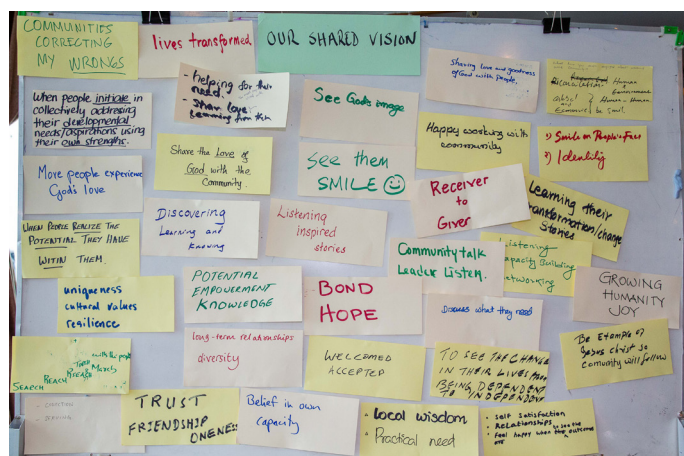 COMMUNITIES
CORRECTING
MY WRONGS
lives transformed
OUR SHARED VISION
Sharing love and goodness
of God with people.
Human
Human - Human
When people initiate in
collectively addressing
their developmental
needs/aspirations using
their own strengths.
- helping for their
need.
- Share love
Learning from
See God's image
Happy working with
community
1) Smile on People's Face
2) Identity
More people experience
God's love
Share the Love of
God with the
Community.
See them
SMILE
Receiver
to
Giver
Learning their
transformation/change
Stories
WHEN PEOPLE REALIZE THE
POTENTIAL THEY HAVE
WITIN THEM.
Discovering
Learning and
Knowing
Listening
inspired
stories
Community talk
Leader Listen.
Listening
Capacity Building
Networking
uniqueness
cultural values
resilience
POTENTIAL
EMPOWERMENT
KNOWLEDGE
BOND
HOPE
Discuss what they need
GROWING
HUMANITY
JOY
SEARCH
REACH
TOUCH
March
with the people
long-term relationships
diversity
WELCOMED
ACCEPTED
TO SEE THE CHANGE
IN THEIR LIVES FROM
BEING DEPENDENT
TO INDEPENDENT
Be Example of
Jesus christ so
comunity will follow
TRUST
FRIENDSHIP
ONENESS
Belief in own
capacity
• Local wisdom
• Practical need
• Self Satisfaction
• Relationships
• Feel happy when the outcome
to see the